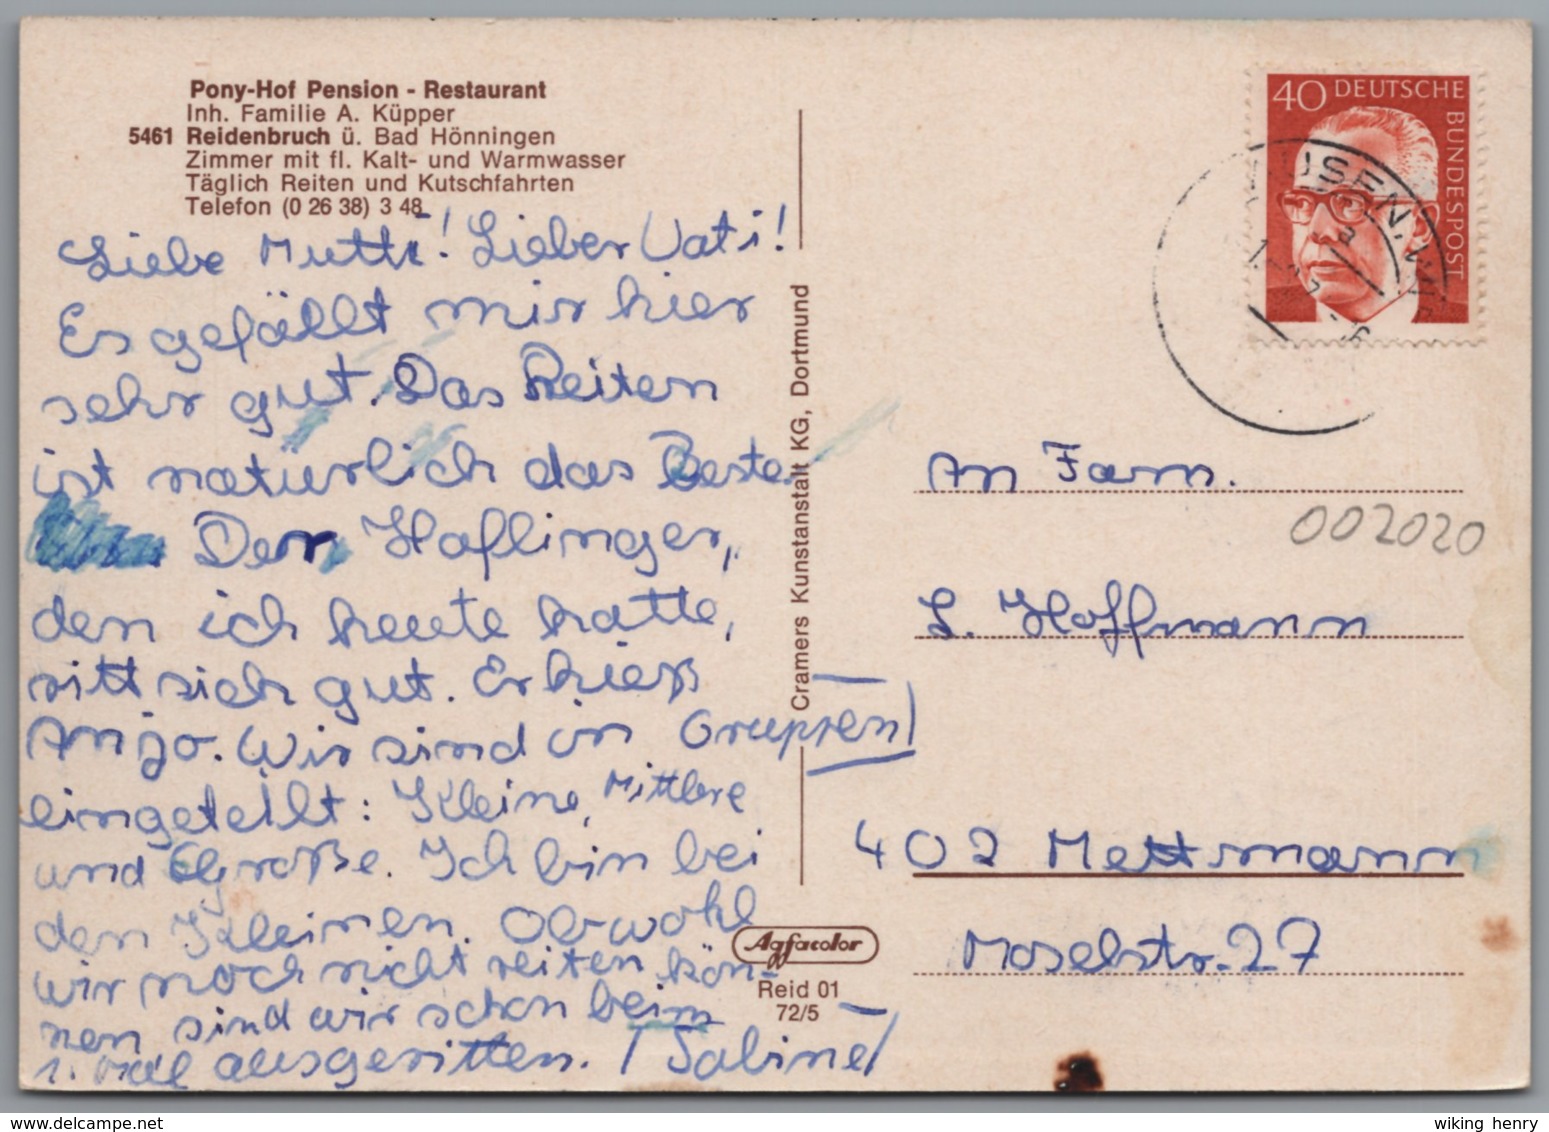 Pony-Hof Pension - Restaurant
Inh. Familie A. Küpper
5461 Reidenbruch ü. Bad Hönningen
Zimmer mit fl. Kalt- und Warmwasser
Täglich Reiten und Kutschfahrten
Telefon (0 26 38) 3 48
Liebe Mutti! Lieber Vati!
Es gefällt mir hier
sehr gut. Das Reiten
ist natürlich das Beste.
Der Haflinger,
den ich heute hatte,
ritt sich gut. Er hieß
Anjo. Wir sind in Gruppen
eingeteilt: Kleine, Mittlere
und Große. Ich bin bei
den Kleinen. Obwohl
wir noch nicht reiten kön-
nen sind wir schon beim
1. Mal ausgeritten. / Sabine/
Cramers Kunstanstalt KG, Dortmund
Agfacolor
Reid 01
72/5
40 DEUTSCHE
BUNDESPOST
An Fam.
002020
L. Hoffmann
402 Mettmann
Moselstr. 27
wiking henry